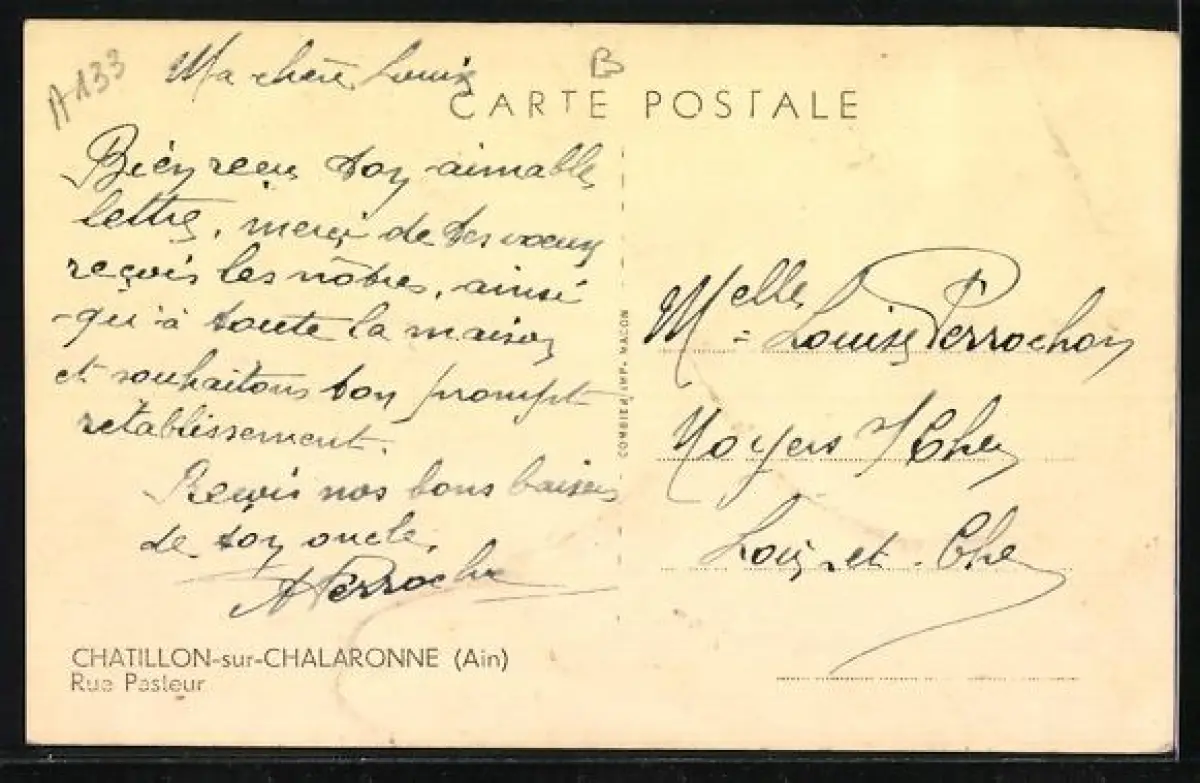 A133
B
CARTE POSTALE
Ma chère Louise
Bien reçu ton aimable
lettre, merci de tes vœux
reçois les nôtres, ainsi
qu'à toute la maison
et souhaitons bon prompt
rétablissement.
Reçois nos bons baisers
de ton oncle,
A Perrochon
COMBIER IMP. MACON
Melle Louise Perrochon
Noyers s/ Cher
Loir et Cher
CHATILLON-sur-CHALARONNE (Ain)
Rue Pasteur